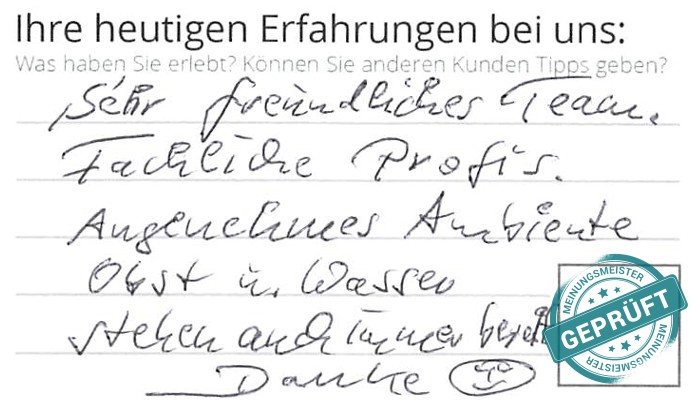 Ihre heutigen Erfahrungen bei uns:
Was haben Sie erlebt? Können Sie anderen Kunden Tipps geben?
Sehr freundliches Team.
Fachliche Profis.
Angenehmes Ambiente
Obst u. Wasser
stehen auch immer bereit
Danke
MEINUNGSMEISTER
GEPRÜFT
MEINUNGSMEISTER